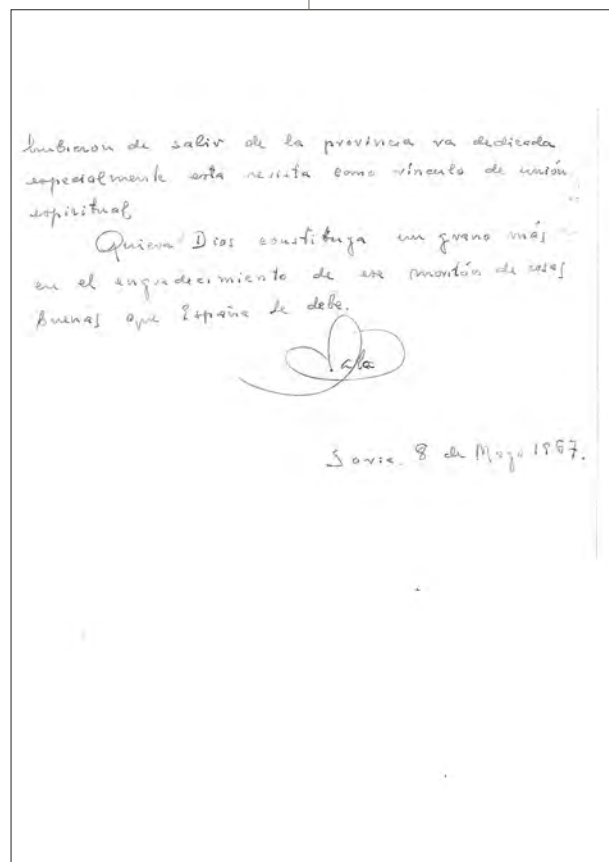 hubieron de salir de la provincia va dedicada
especialmente esta revista como vínculo de unión
espiritual
Quiera Dios constituya un grano más
en el engradecimiento de ese montón de cosas
buenas que España le debe.
Soria. 8 de Mayo 1967.